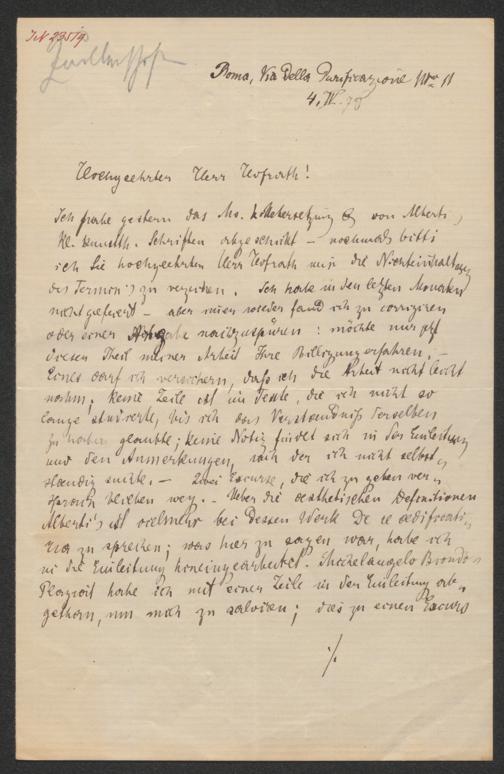 Roma, Via della Purificazione Nro 11
4. 78
Hochgeehrter Herr Hofrath!
Ich habe gestern das Ms. Uebersetzung von Alberti's
kl. kunstth. Schriften abgeschikt – nochmals bitte
ich Sie hochgeehrter Herr Hofrath mir die Nichteinhaltung
des Termin's zu verzeihen. Ich habe in den letzten Monaten
nicht gefeiert – aber immer wieder fand ich zu corrigiren
oder einer nachzuspüren: möchte nur
dieser Theil meiner Arbeit Ihre Billigung erfahren. –
Eines darf ich versichern, daß ich die Arbeit nicht leicht
nahm; keine Zeile ist im Texte, die ich nicht so
lange studirte, bis ich das Verständniß derselben
zu haben glaubte; keine Notiz findet sich in der Einleitung
und den Anmerkungen, nach der ich nicht selbst-
ständig suchte. – Zwei Excurse, die ich zu geben ver-
sprach blieben weg. – Ueber die aesthetischen Definitionen
Alberti's ist vielmehr bei dessen Werk De re aedificato-
ria zu sprechen; was hier zu sagen war, habe ich
in die Einleitung hineingearbeitet. Michelangelo Biondo's
Plagiat habe ich mit einer Zeile in der Einleitung ab-
gethan, um mich zu salviren; dies zu einem Excurs
./.